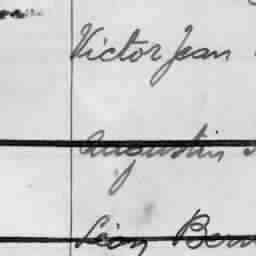 Victor Jean
Augustin
Léon